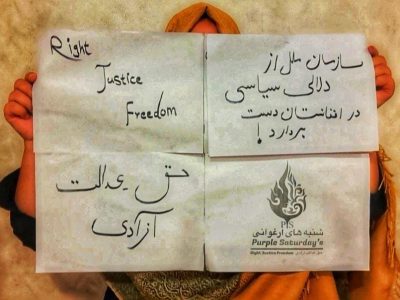 Right
Justice
Freedom
سازمان ملل از
دلالی سیاسی
در افغانستان دست
بردارد!
حق عدالت
آزادی
PJS
شنبه های ارغوانی
Purple Saturday's
Right Justice Freedom